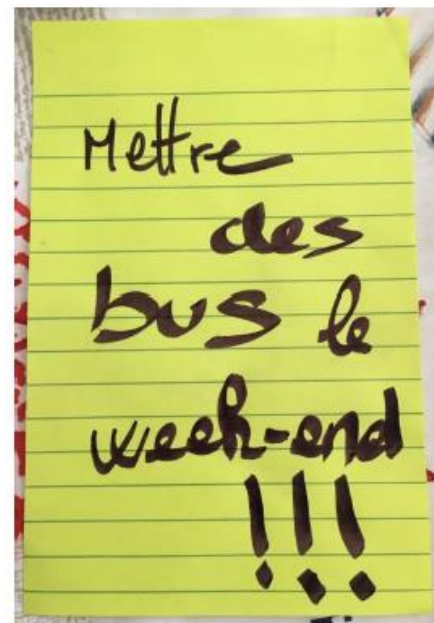 Mettre
des
bus le
week-end
!!!